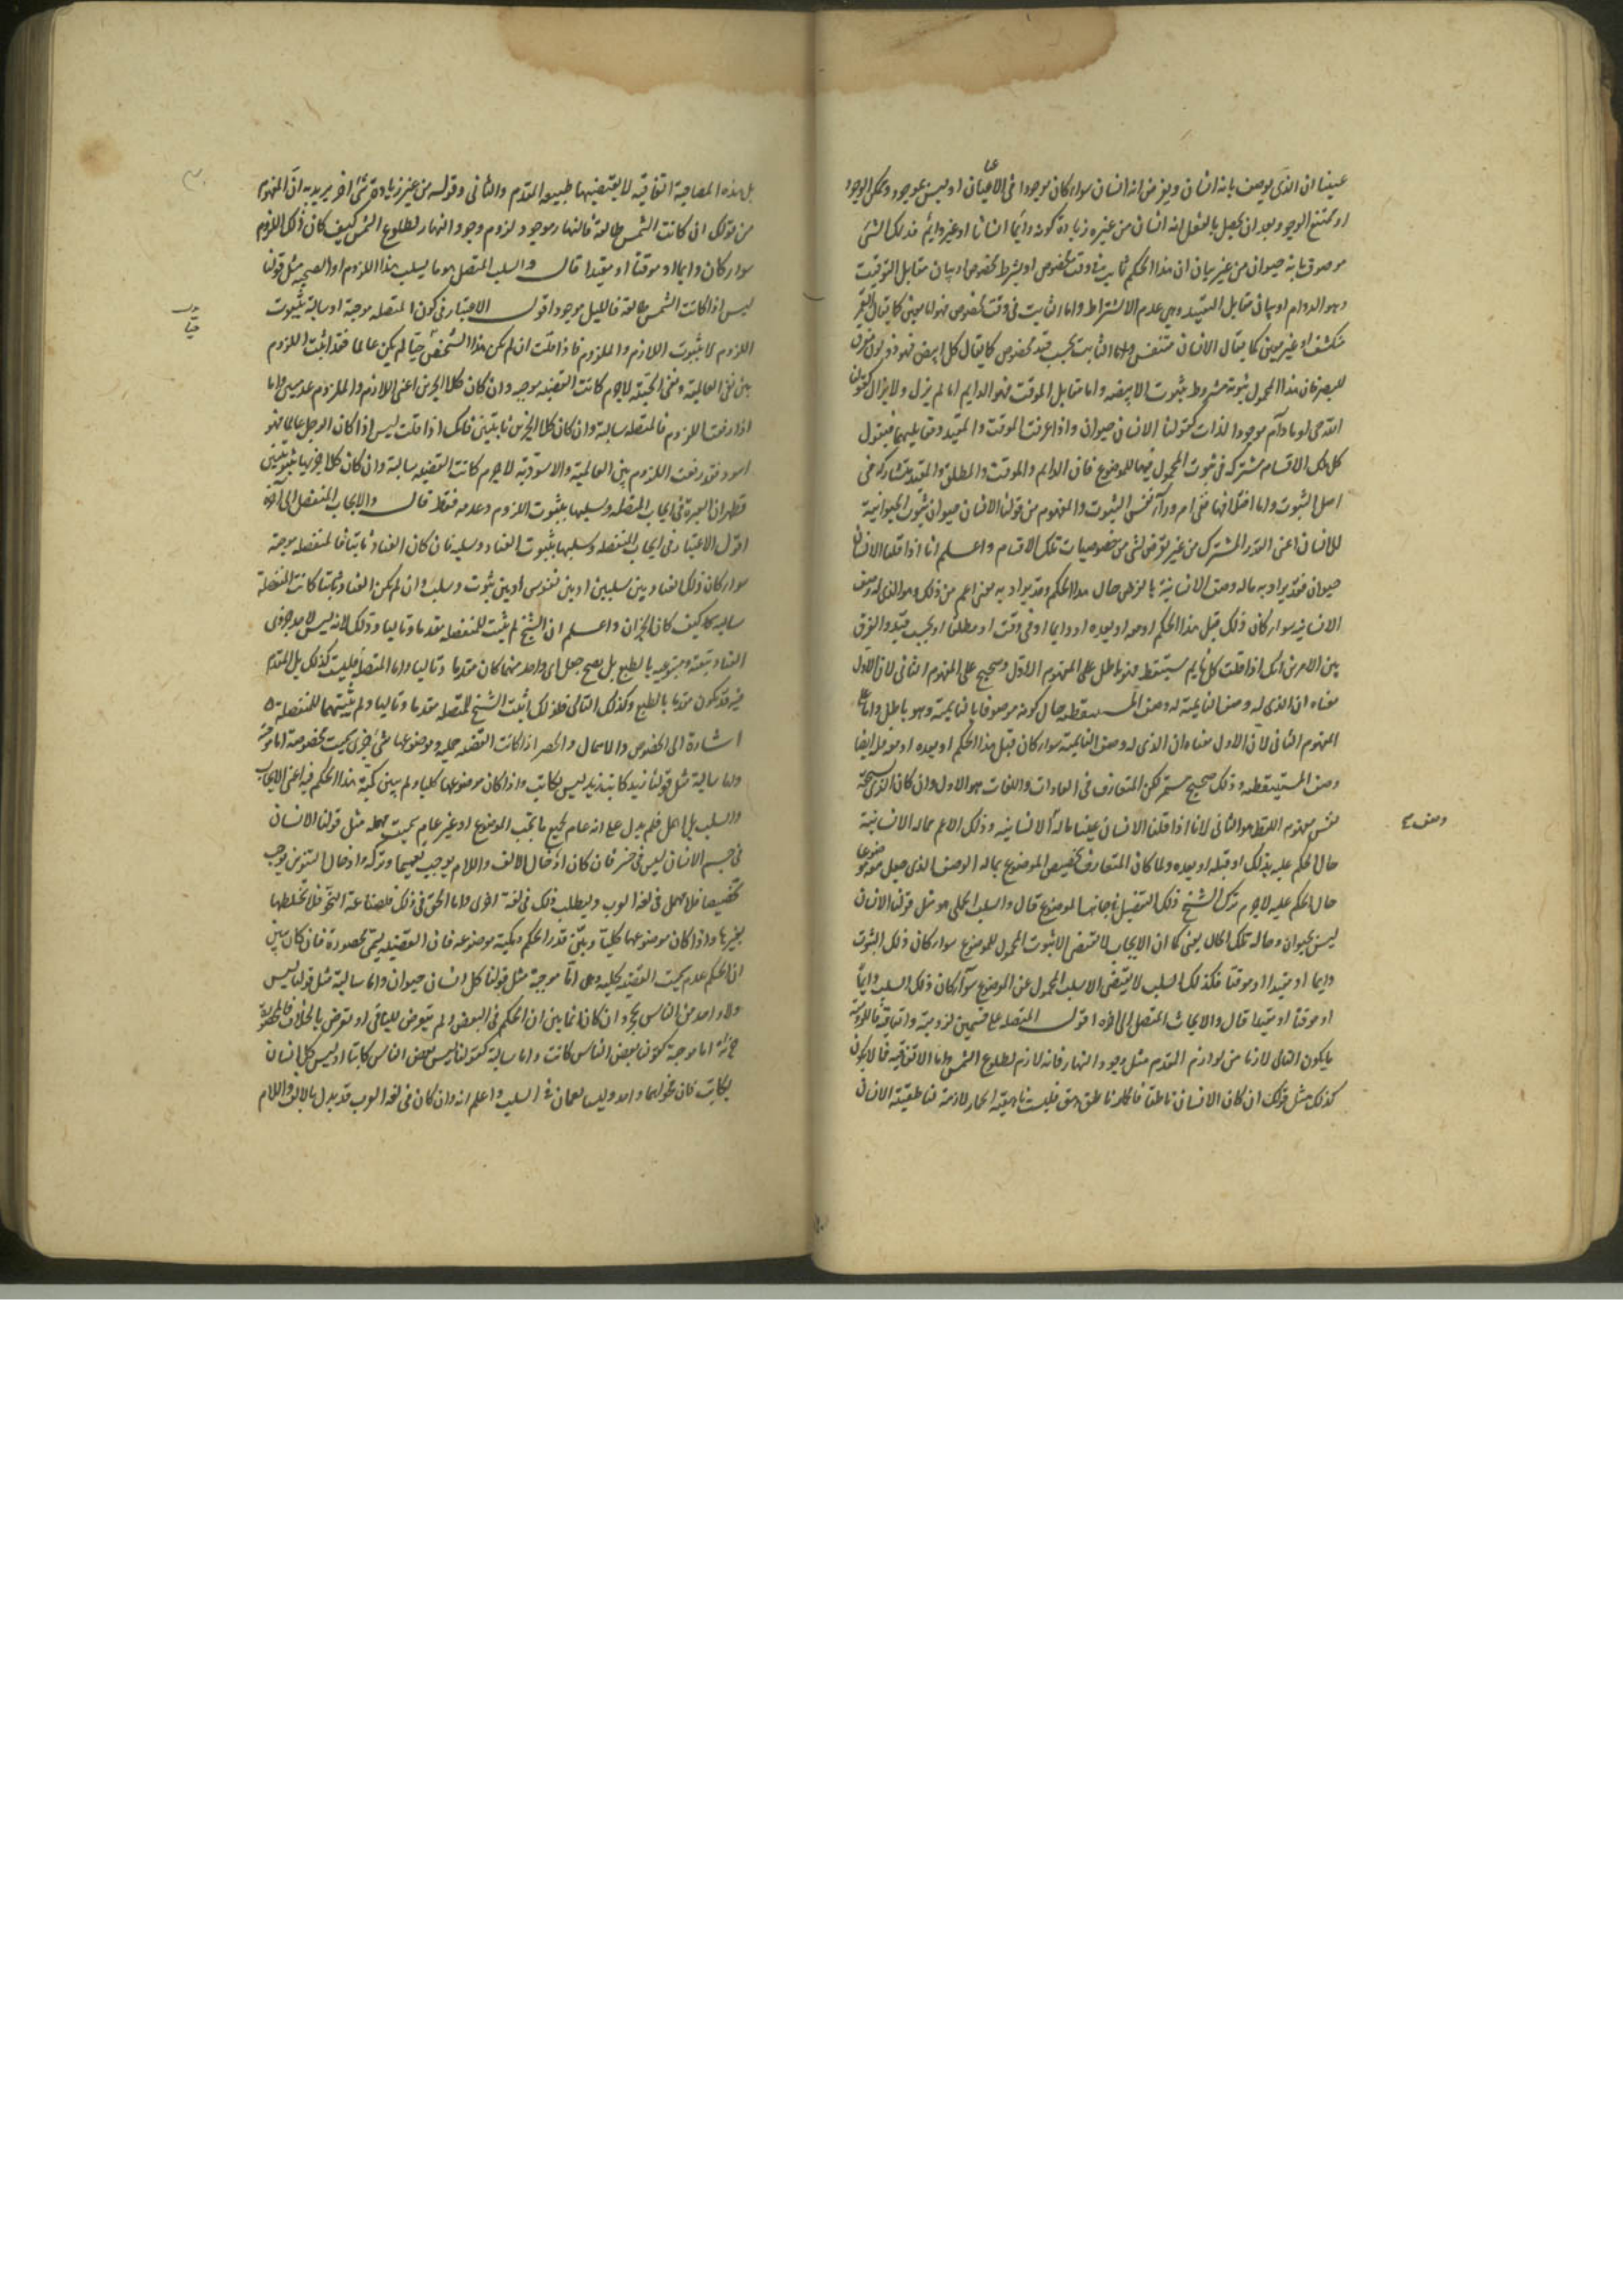 عينا ان الذى يوصف بانه انسان ويفرض انه انسان سواء كان موجودا فى الاعيان او ليس بموجود وممكن الوجود
او ممتنع الوجود بعد ان يجعل بالفعل انه انسان من غير زيادة كونه دائما انسانا او غير دائم فذلك الشئ
موصوف بانه حيوان من غير بيان ان هذا الحكم ثابت فى وقت مخصوص او بشرط مخصوص او بيان مقابل التوقيت
وهو الدوام او بيان مقابل التقييد وهى عدم الاشتراط واما الثابت فى وقت مخصوص فهو اما معين كما يقال القمر
منكسف او غير معين كما يقال الانسان متنفس واما الثابت بحسب قيد مخصوص كما يقال كل ابيض فهو ذو لون مفرق
للبصر فان هذا المحمول ثبوته مشروط بثبوت الابيضية واما مقابل الموقت فهو الدايم اما لم يزل ولا يزال كقولنا
الله حى او ما دام موجود الذات كقولنا الانسان حيوان واذا عرفت الموقت والمقيد ومقابليهما فنقول
كل تلك الاقسام مشتركة فى ثبوت المحمول فيها للموضوع فان الدايم والموقت والمطلق والمقيد متشاركة فى
اصل الثبوت واما اختلافها ففى امر وراء نفس الثبوت والمفهوم من قولنا الانسان حيوان ثبوت الحيوانية
للانسان اعنى القدر المشترك من غير تعرض لشئ من خصوصيات تلك الاقسام واعلم انا اذا قلنا الانسان
حيوان فقد يراد به ماله وصف الانسانية بالفرض حال هذا الحكم وقد يراد به معنى اعم من ذلك وهو الذى له وصف
الانسانية سواء كان ذلك قبل هذا الحكم او معه او بعده او دايما او فى وقت او مطلقا او بحسب قيد والفرق
بين الامرين انك اذا قلت كل نايم مستيقظ فهو باطل على المفهوم الاول وصحيح على المفهوم الثانى لان الاول
معناه ان الذى له وصف النايمية له وصف المستيقظية حال كونه موصوفا بالنايمية وهو باطل واما على
المفهوم الثانى لان الاول معناه ان الذى له وصف النايمية سواء كان قبل هذا الحكم او بعده او معه له ايضا
وصف المستيقظية وذلك صحيح مستمر لكن المتعارف فى العادات واللغات هو الاول وان كان الذى يستحقه
نفس مفهوم اللفظ هو الثانى لانا اذا قلنا الانسان عينا ماله الانسانية وذلك الاعم مما له الانسانية
وصف صح
حال الحكم عليه بذلك او قبله او بعده ولما كان المتعارف تخصيص الموضوع بماله الوصف الذى جعل معه موضوعا
حال الحكم عليه لاجرم ترك الشيخ ذلك التفصيل فى جانب الموضوع قال والسلب الحملى هو مثل قولنا الانسان
ليس بحيوان وحاله تلك الحال يعنى كما ان الايجاب لا يقتضى الا ثبوت المحمول للموضوع سواء كان ذلك الثبوت
دايما او مقيدا او موقتا فكذلك السلب لا يقتضى الا سلب المحمول عن الموضوع سواء كان ذلك السلب دايما
او موقتا او مقيدا قال والايجاب المتصل الى آخره اقول المتصلة على قسمين لزومية واتفاقية فاللزومية
ما يكون التالى لازما من لوازم المقدم مثل وجود النهار فانه لازم لطلوع الشمس واما الاتفاقية فما لا يكون
كذلك مثل قولك ان كان الانسان ناطقا فالحمار ناهق فليست ناهقية الحمار لازمة لناطقية الانسان
بل هذه المصاحبة اتفاقية لا يقتضيها طبيعة المقدم والتالى وقوله من غير زيادة شئ آخر يريد به ان المفهوم
من قولك ان كانت الشمس طالعة فالنهار موجود لزوم وجود النهار لطلوع الشمس كيف كان ذلك اللزوم
سواء كان دايما او موقتا او مقيدا قال والسلب المتصل هو ما يسلب هذا اللزوم او الصحبة مثل قولنا
ليس اذا كانت الشمس طالعة فالليل موجود اقول الاعتبار فى كون المتصلة موجبة او سالبة بثبوت
اللزوم لا بثبوت اللازم والملزوم فاذا قلت ان لم يكن هذا الشخص حيا لم يكن عالما فقد اثبت اللزوم
بين نفى العالمية ونفى الحيية لاجرم كانت القضية موجبة وان كان كلا الجزئين اعنى اللازم والملزوم عدميين واما
اذا رفعت اللزوم فالمتصلة سالبة وان كان كلا الجزئين ثابتين فانك اذا قلت ليس اذا كان الرجل عالما فهو
اسود فقد رفعت اللزوم بين العالمية والاسودية لاجرم كانت القضية سالبة وان كان كلا جزئيها ثبوتيين
فظهر ان العبرة فى ايجاب المتصلة وسلبها بثبوت اللزوم وعدمه فقط قال والايجاب المنفصل الى آخره
اقول الاعتبار فى ايجاب المنفصلة وسلبها بثبوت العناد وسلبه فان كان العناد ثابتا فالمنفصلة موجبة
سواء كان ذلك العناد بين سلبين او بين ثبوتين او بين ثبوت وسلب وان لم يكن العناد ثابتا كانت المنفصلة
سالبة كيف كان الجزءان واعلم ان الشيخ لم يثبت للمنفصلة مقدما وتاليا وذلك لانه ليس لاحد جزئى
العناد تبعية ومتبوعية بالطبع بل يصح جعل اى واحد منهما كان مقدما وتاليا واما المتصلة فليست كذلك بل المقدم
فيه قد يكون مقدما بالطبع وكذلك التالى فلذلك اثبت الشيخ للمتصلة مقدما وتاليا ولم يثبتهما للمنفصلة
اشارة الى الخصوص والاهمال والحصر اذا كانت القضية حملية وموضوعها شئ جزئى سميت مخصوصة اما موجبة
واما سالبة مثل قولنا زيد كاتب زيد ليس بكاتب واذا كان موضوعها كليا ولم يبين كمية هذا الحكم فيه اعنى الايجاب
والسلب بل اهمل فلم يدل على انه عام لجميع ما تحت الموضوع او غير عام سميت مهملة مثل قولنا الانسان
فى خسر الانسان ليس فى خسر فان كان ادخال الالف واللام يوجب تعميما وتركه وادخال التنوين يوجب
تخصيصا فلا مهمل فى لغة العرب وليطلب ذلك فى لغة اخرى واما الحق فى ذلك فلصناعة النحو فلا نخلطها
بغيرها واذا كان موضوعها كليا وبين قدر الحكم وكمية موضوعه فان القضية يسمى محصورة فان كان بين
ان الحكم عام سميت القضية كلية وهى اما موجبة مثل قولنا كل انسان حيوان واما سالبة مثل قولنا ليس
ولا واحد من الناس بحجر وان كان انما بين ان الحكم فى البعض ولم يتعرض للباقى او تعرض بالخلاف فالمحصورة
جزئية اما موجبة كقولنا بعض الناس كاتب واما سالبة كقولنا ليس بعض الناس كاتبا او ليس كل انسان
بكاتب فان فحواهما واحد وليسا يعمان فى السلب واعلم انه وان كان فى لغة العرب قد يدل بالالف واللام